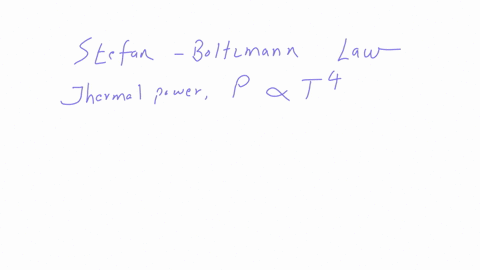 Stefan - Boltzmann Law
Thermal power, P ∝ T⁴